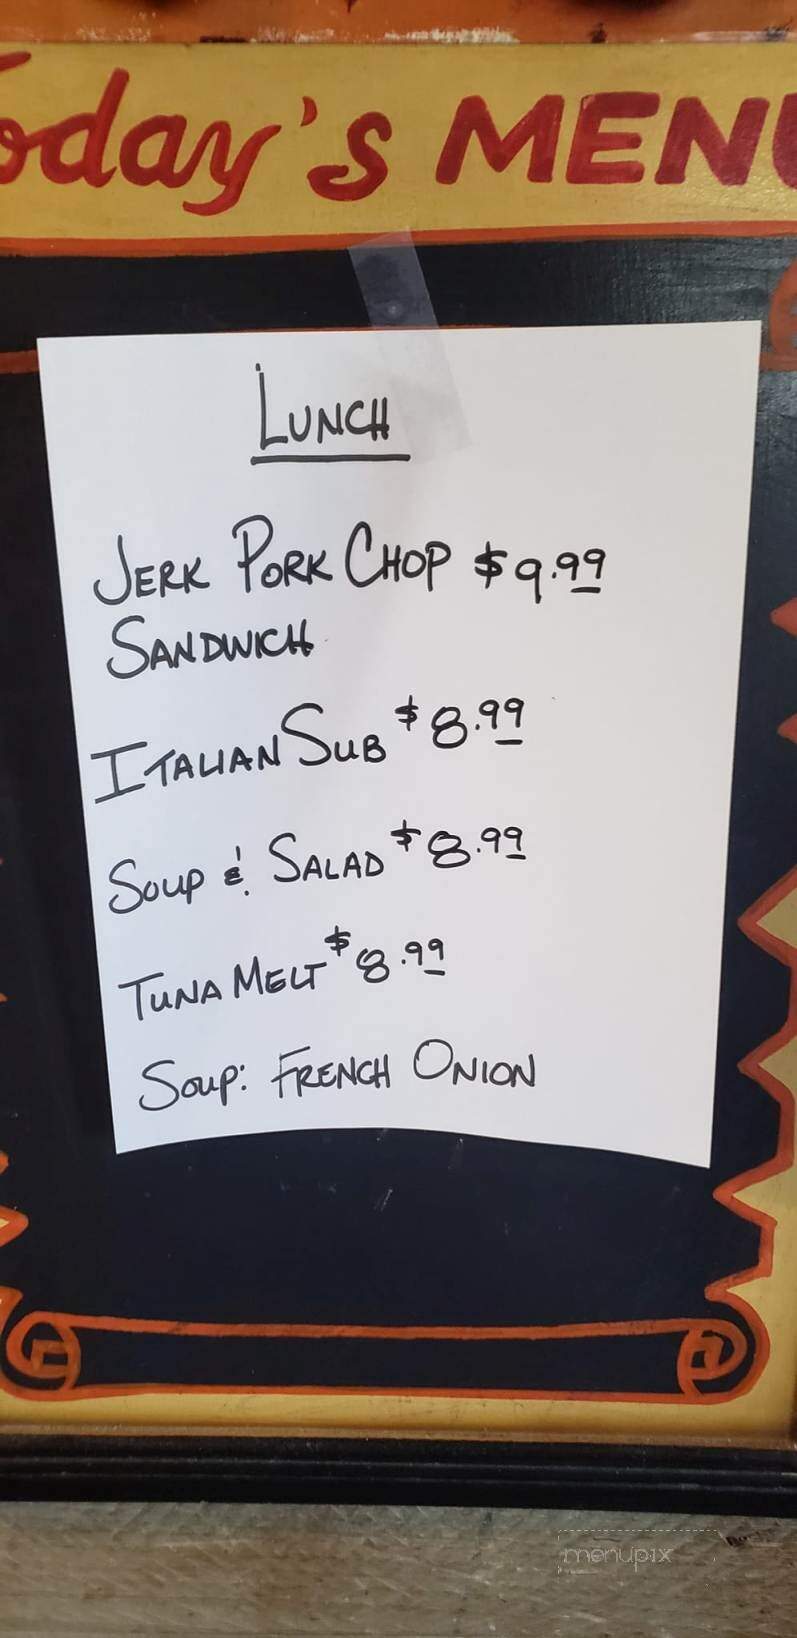 Today's MENU
LUNCH
JERK PORK CHOP $9.99
SANDWICH
ITALIAN SUB $8.99
SOUP & SALAD $8.99
TUNA MELT $8.99
SOUP: FRENCH ONION
menupix